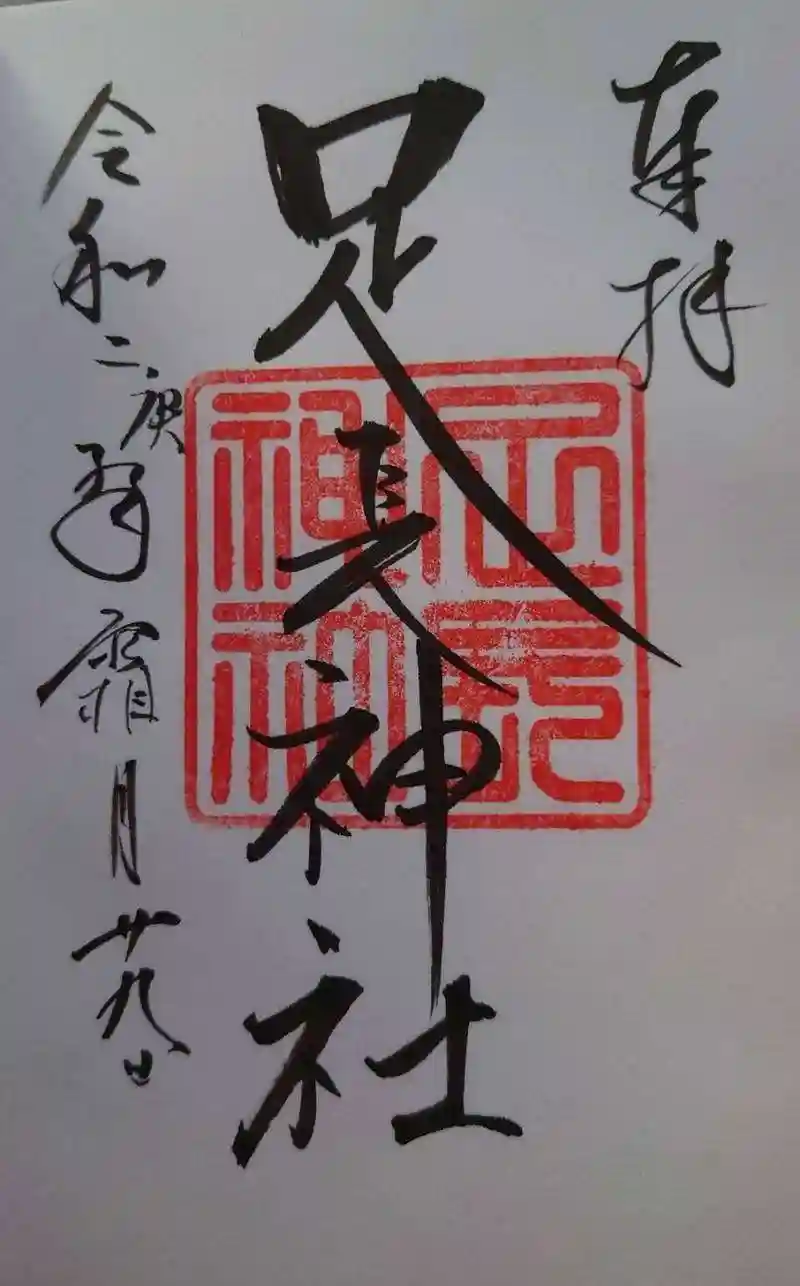 奉拝
足長神社
足長
神社
令和二庚子年霜月廿九日